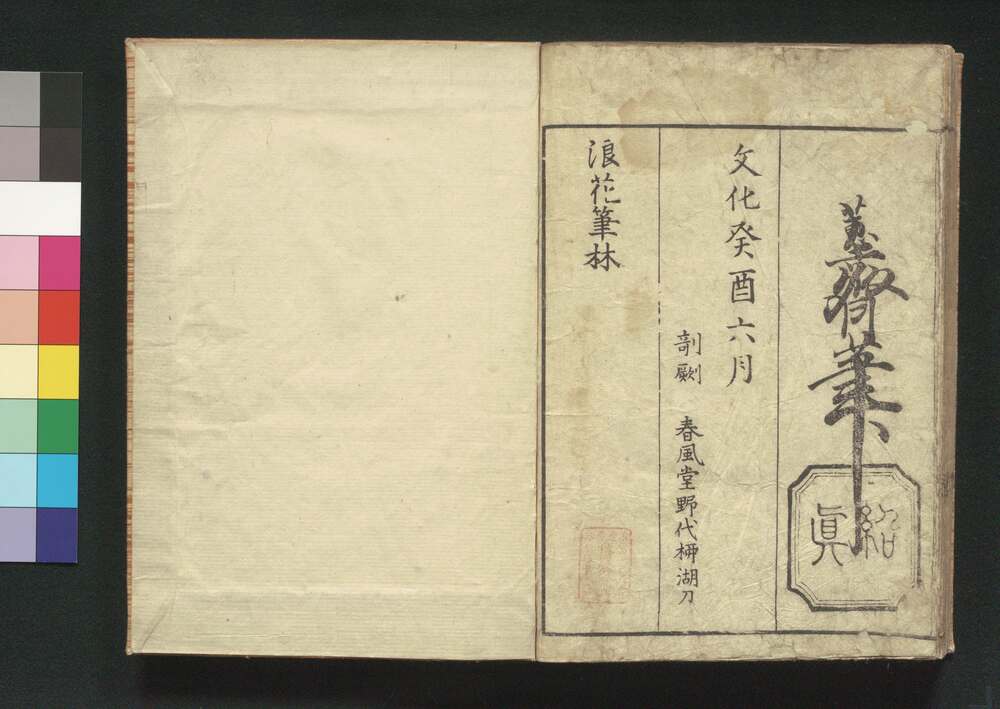 蕙齋筆
紹眞
文化癸酉六月
剞劂 春風堂野代柳湖刀
浪花筆林